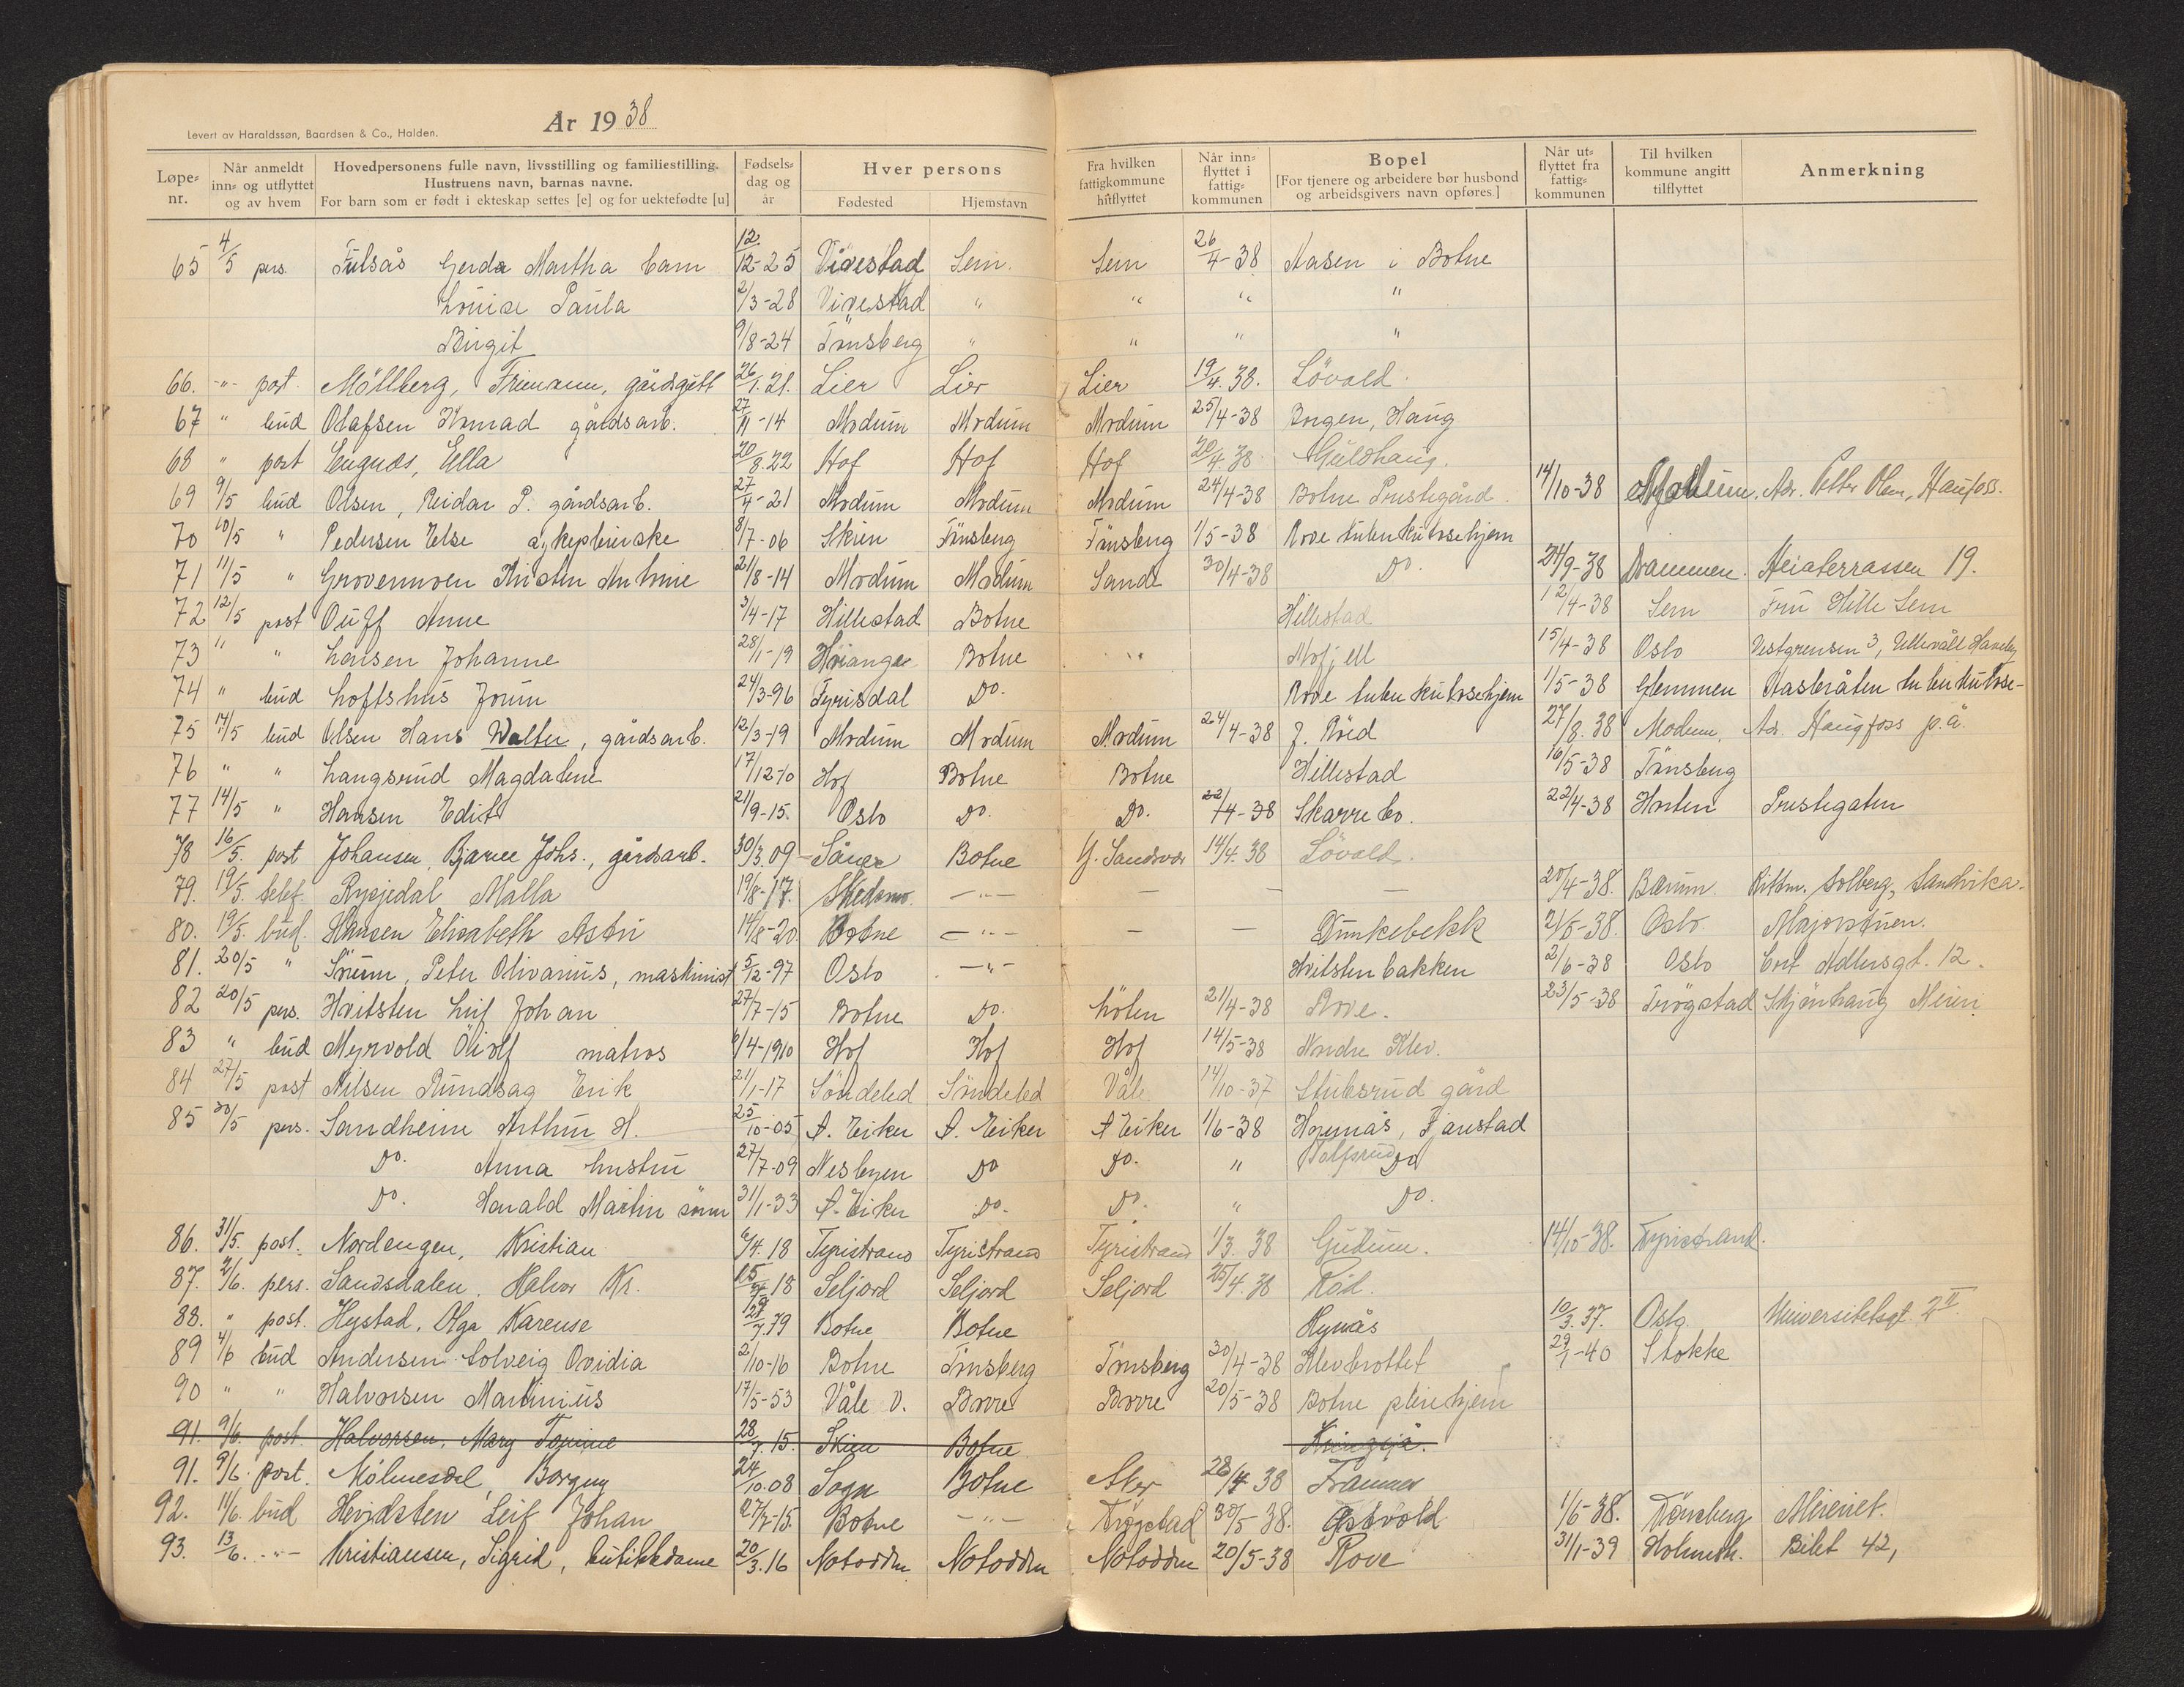 Levert av Haraldssøn, Baardsen & Co., Halden.
År 1938
Løpe-nr. Når anmeldt inn- og utflyttet og av hvem Hovedpersonens fulle navn, livsstilling og familiestilling. Hustruens navn, barnas navne. For barn som er født i ekteskap settes [e] og for uektefødte [u] Fødsels-dag og år Hver persons Fødested Hjemstavn Fra hvilken fattigkommune hitflyttet Når inn-flyttet i fattig-kommunen Bopel [For tjenere og arbeidere bør husbond og arbeidsgivers navn opføres.] Når ut-flyttet fra fattig-kommunen Til hvilken kommune angitt tilflyttet Anmerkning
65 4/5 pers. Fulsås Gerda Martha barn 12/12-25 Vivestad Sem. Sem 26/4-38 Aasen i Botne
Louise Paula 2/3-28 Vivestad " " " "
Birgit 9/8-24 Tønsberg " " " "
66. -"- post. Möllberg, Friemann, gårdsgutt 26/1.21. Lier Lier Lier 19/4.38. Lövald.
67 " bud Olafsen Konrad gårdsarb. 27/11-14 Modum Modum Modum 25/4-38 Borgen, Haug
68 " post Engnæs, Ella 20/8.22 Hof Hof Hof 20/4.38. Gullhaug.
69 9/5 bud Olsen, Reidar P. gårdsarb. 27/4-21 Modum Modum Modum 24/4-38 Botne Prestegård. 14/10-38 Modum. Adr. Petter Olsen, Haufoss.
70 10/5 " Pedersen Else sykepleierske 8/7-06 Skien Tönsberg Tönsberg 1/5-38 Rove tuberkulosehjem
71 11/5 " Grovenmoen Kristen Antonie 21/8-14 Modum Modum Sande 30/4-38 Do. 24/9-38 Drammen. Heiaterrassen 19.
72 12/5 post Ouff Anne 3/4-17 Hillestad Botne Hillestad 12/4-38 Sem Fru Hille Sem
73 " " Larsen Johanne 28/1-19 Botne " Mofjell 15/4-38 Oslo Vestgrensen 3, Ullevåll Haveby
74 " bud Loftshus Jorun 24/3-96 Fyrisdal Do. Rove tuberkulosehjem 1/5-38 Glemmen Aasbråten tuberkulose-
75 14/5 bud Olsen Hans Walter, gårdsarb. 12/3-19 Modum Modum Modum 24/4-38 J. Röed 27/8.38 Modum. Adr. Haugfoss p.å.
76 " " Langsrud Magdalene 17/12-10 Hof Botne Botne Hillestad 16/5-38 Tönsberg
77 14/5 " Hansen Edith 21/9-15. Oslo Do. Do. 22/4-38 Skarrebo. 22/4-38 Horten Prestegaten
78 16/5. post Johansen, Bjarne Johs., gårdsarb. 30/3.09 Såner Botne Y. Sandsvær 14/4.38 Lövald.
79. 19/5. telef. Rysjedal Malla 19/8-17. Skedsmo. -"- - - - 20/4-38. Bærum. Rittm. Solberg, Sandvika.
80. 19/5. bud. Hansen Elisabeth Astri 14/8-20 Botne -"- - - Dunkebekk 21/5-38. Oslo. Majorstuen.
81. 20/5 " Sörum, Peter Olivarius, maskinist 5/12-97 Oslo -"- Hvitstenbakken 2/6-38 Oslo Cort Adlersgt. 12.
82 20/5 pers. Hvitsten Leif Johan 27/7-15 Botne Do. Hölen 21/4-38 Rove. 23/5-38 Trögstad Skjönhaug Meieri
83 " bud Myrvold Oliolf matros 6/4-1910 Hof Hof Hof 14/5-38 Nordre Klev.
84 27/5 post Nilsen Rundsag Erik 21/1-17 Söndeled Söndeled Våle 14/10-37 Stubsrud gård
85 30/5 pers. Sandheim Arthur H. 25/10-05 Ö. Eiker Ö. Eiker Ö Eiker 1/6-38 Hoymås, Fjanestad
Do. Anna hustru 27/7-09 Nesbyen Do Do. " Do
Do. Harald Martin sönn 31/1-33 Ö. Eiker Do. Do. " Do.
86. 31/5. post. Nordengen, Kristian 6/4.18 Tyristrand Tyristrand Tyristrand 1/3.38 Gutum. 14/10-38. Tyristrand.
87. 2/6. pers. Sandsdalen, Halvor Kr. 15/.18 Seljord Seljord Seljord 25/4.38 Röd.
88. " post. Hystad, Olga Karense 21/7.79 Botne Botne Hynås 10/3.37. Oslo Universitetsgt. 2 II.
89 4/6 bud Andersen Solveig Ovidia 2/10-16 Botne Tönsberg Tönsberg 30/4-38 Klevbrottet 29/1-40 Stokke
90 " " Halvorsen Martinius 17/5-53 Våle V. Borre Borre 20/5-38 Botne pleiehjem
91. 9/6. post. Halvorsen, Mary Tomine 28/7.15. Skien Botne Kringsjå.
91. 9/6. post. Mölmesdal, Borgny 24/10.08 Sogn Botne Aker 28/4 38 Framnes
92. 11/6. bud Hvidsten Leif Johan 27/7-15. Botne -"- Trögstad 30/5-38. Östvold 1/6-38. Tönsberg Meieriet.
93. 13/6. -"- Kristiansen, Sigrid, butikkdame 20/3.16 Notodden Notodden Notodden 20/5-38 Rove 31/1-39 Holmestr. Bilet 42,